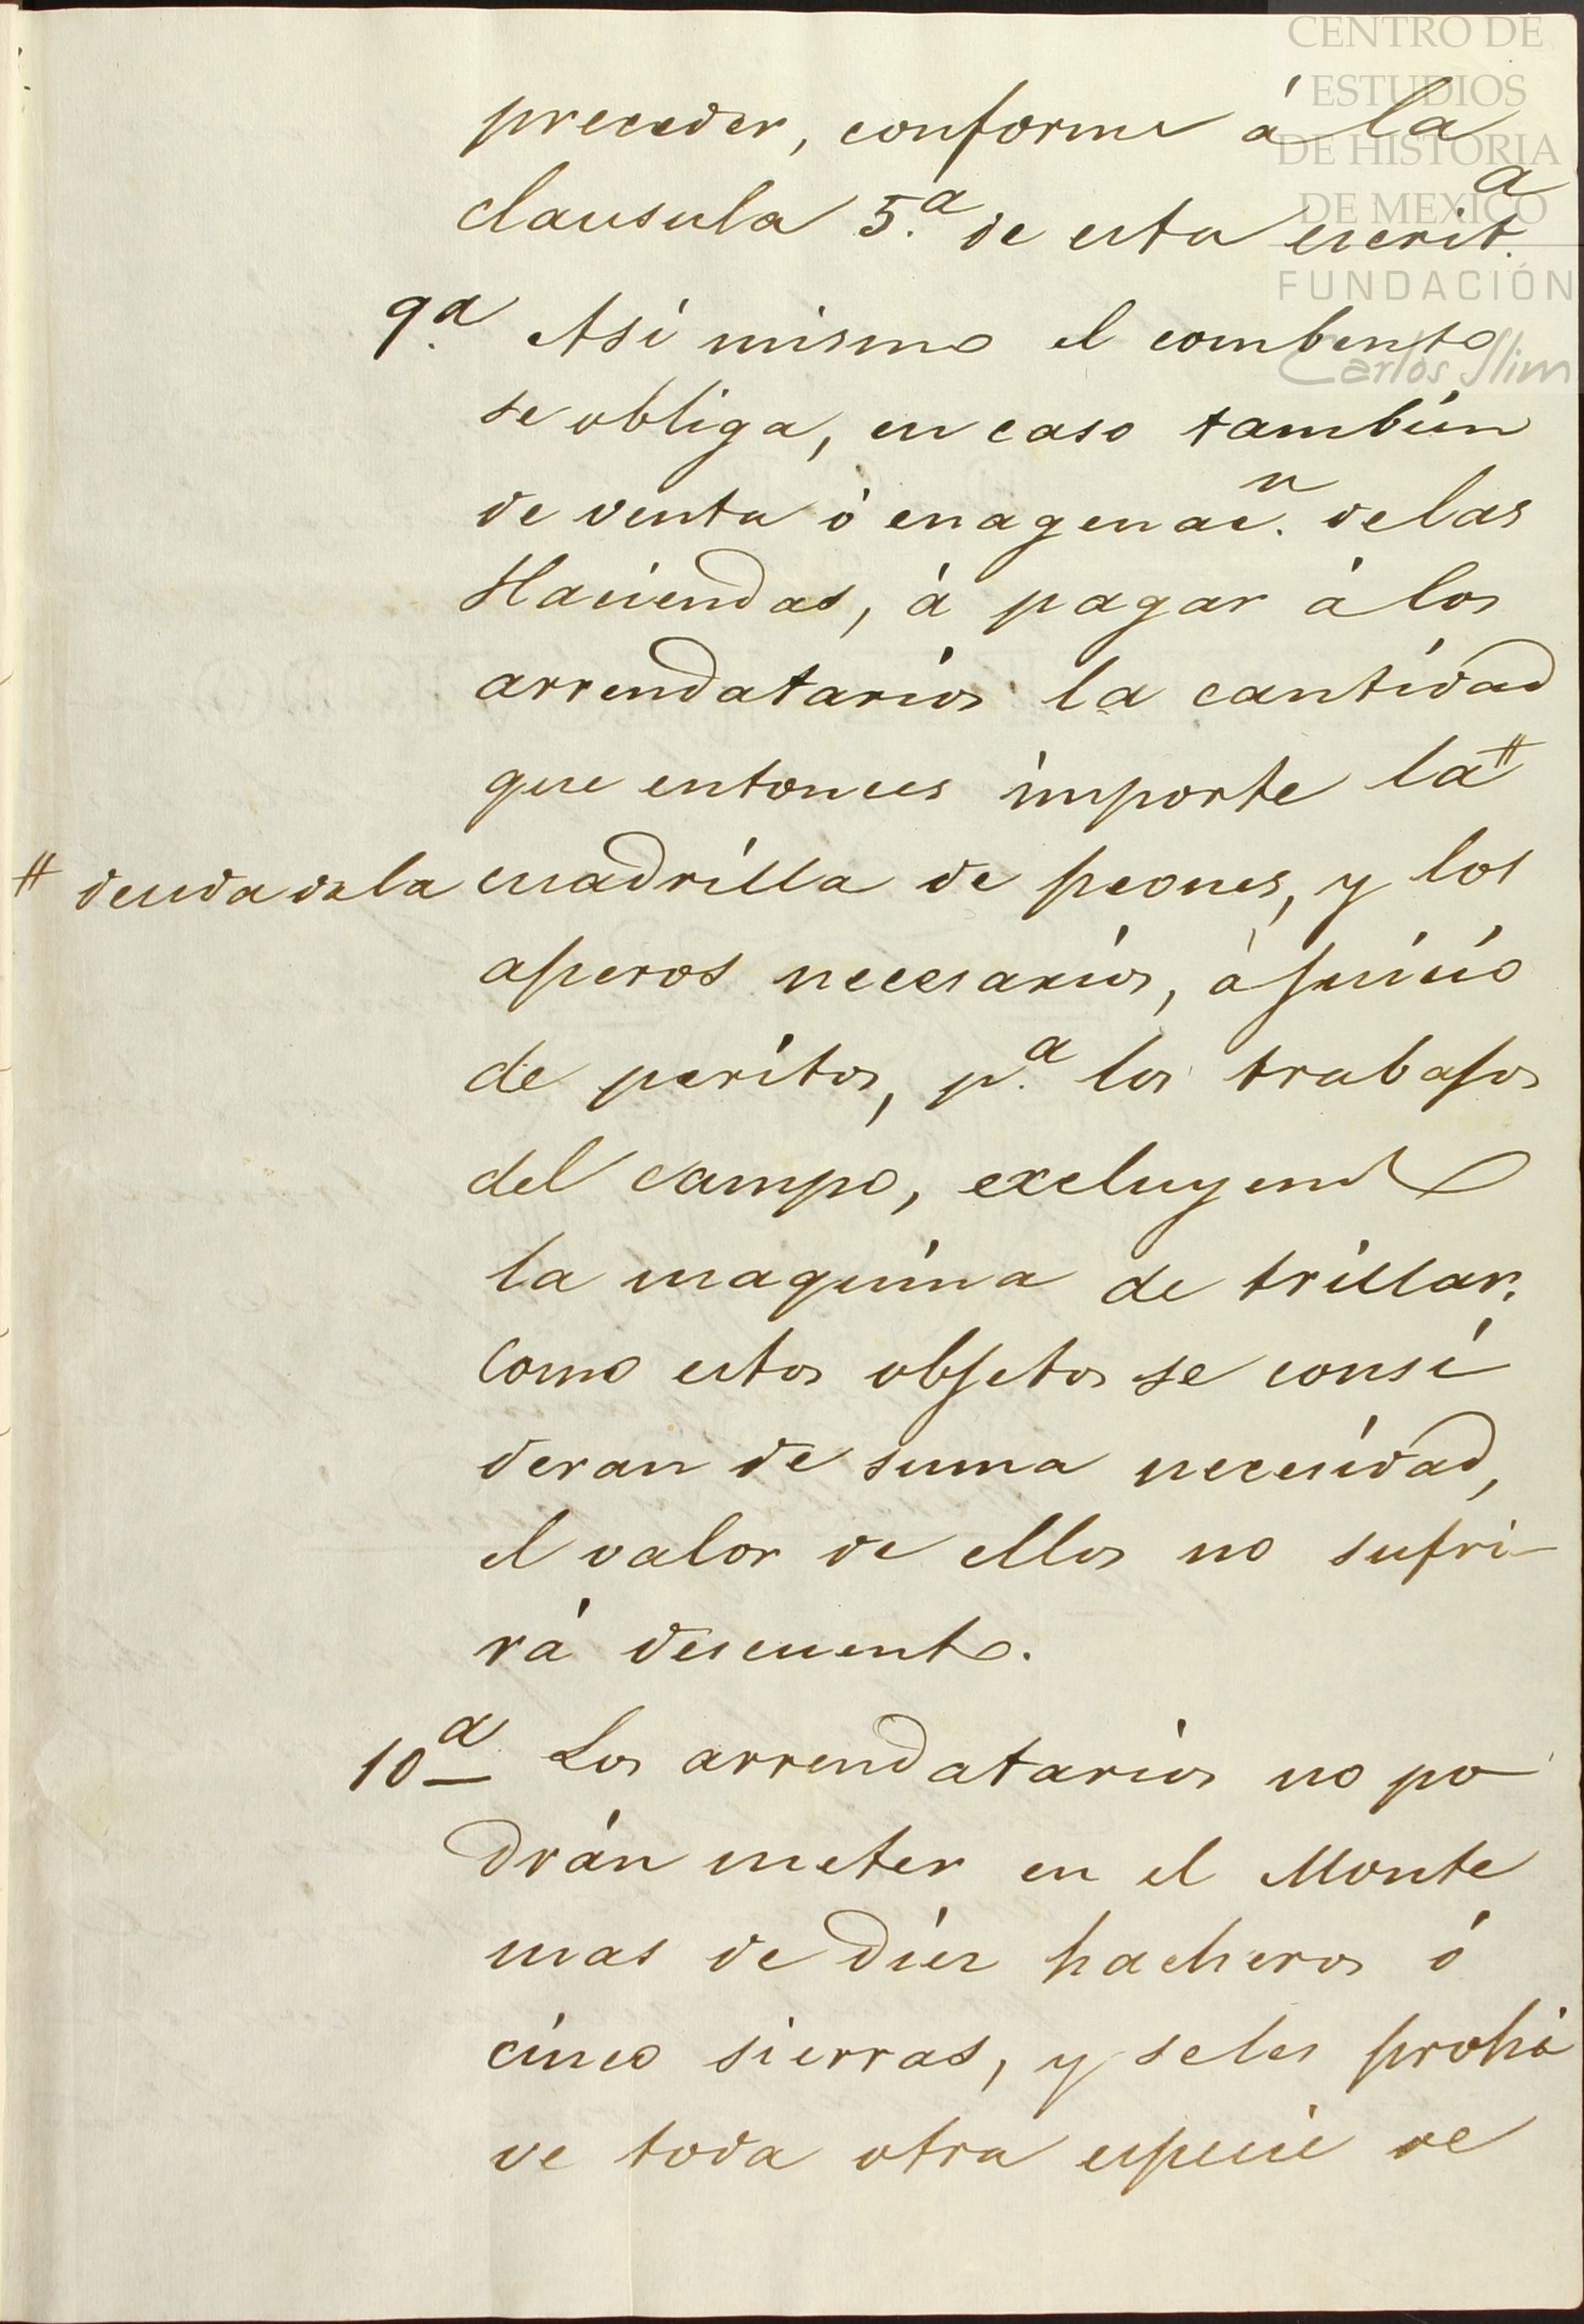 CENTRO DE
ESTUDIOS
DE HISTORIA
DE MEXICO
FUNDACIÓN
Carlos Slim
preceder, conforme á la
clausula 5.ª de esta escrit.ª
9.ª Asi mismo el combento
se obliga, en caso tambien
de venta ó enagenac.n de las
Haciendas, á pagar á los
arrendatarios la cantidad
que entonces importe la #
# deuda de la cuadrilla de peones, y los
aperos necesarios, á juicio
de peritos, p.ª los trabajos
del campo, excluyendo
la maquina de trillar.
Como estos objetos se consi
deran de suma necesidad,
el valor de ellos no sufri-
rá descuento.
10ª Los arrendatarios no po
drán meter en el Monte
mas de diez hacheros ó
cinco sierras, y se les prohi
ve toda otra especie de